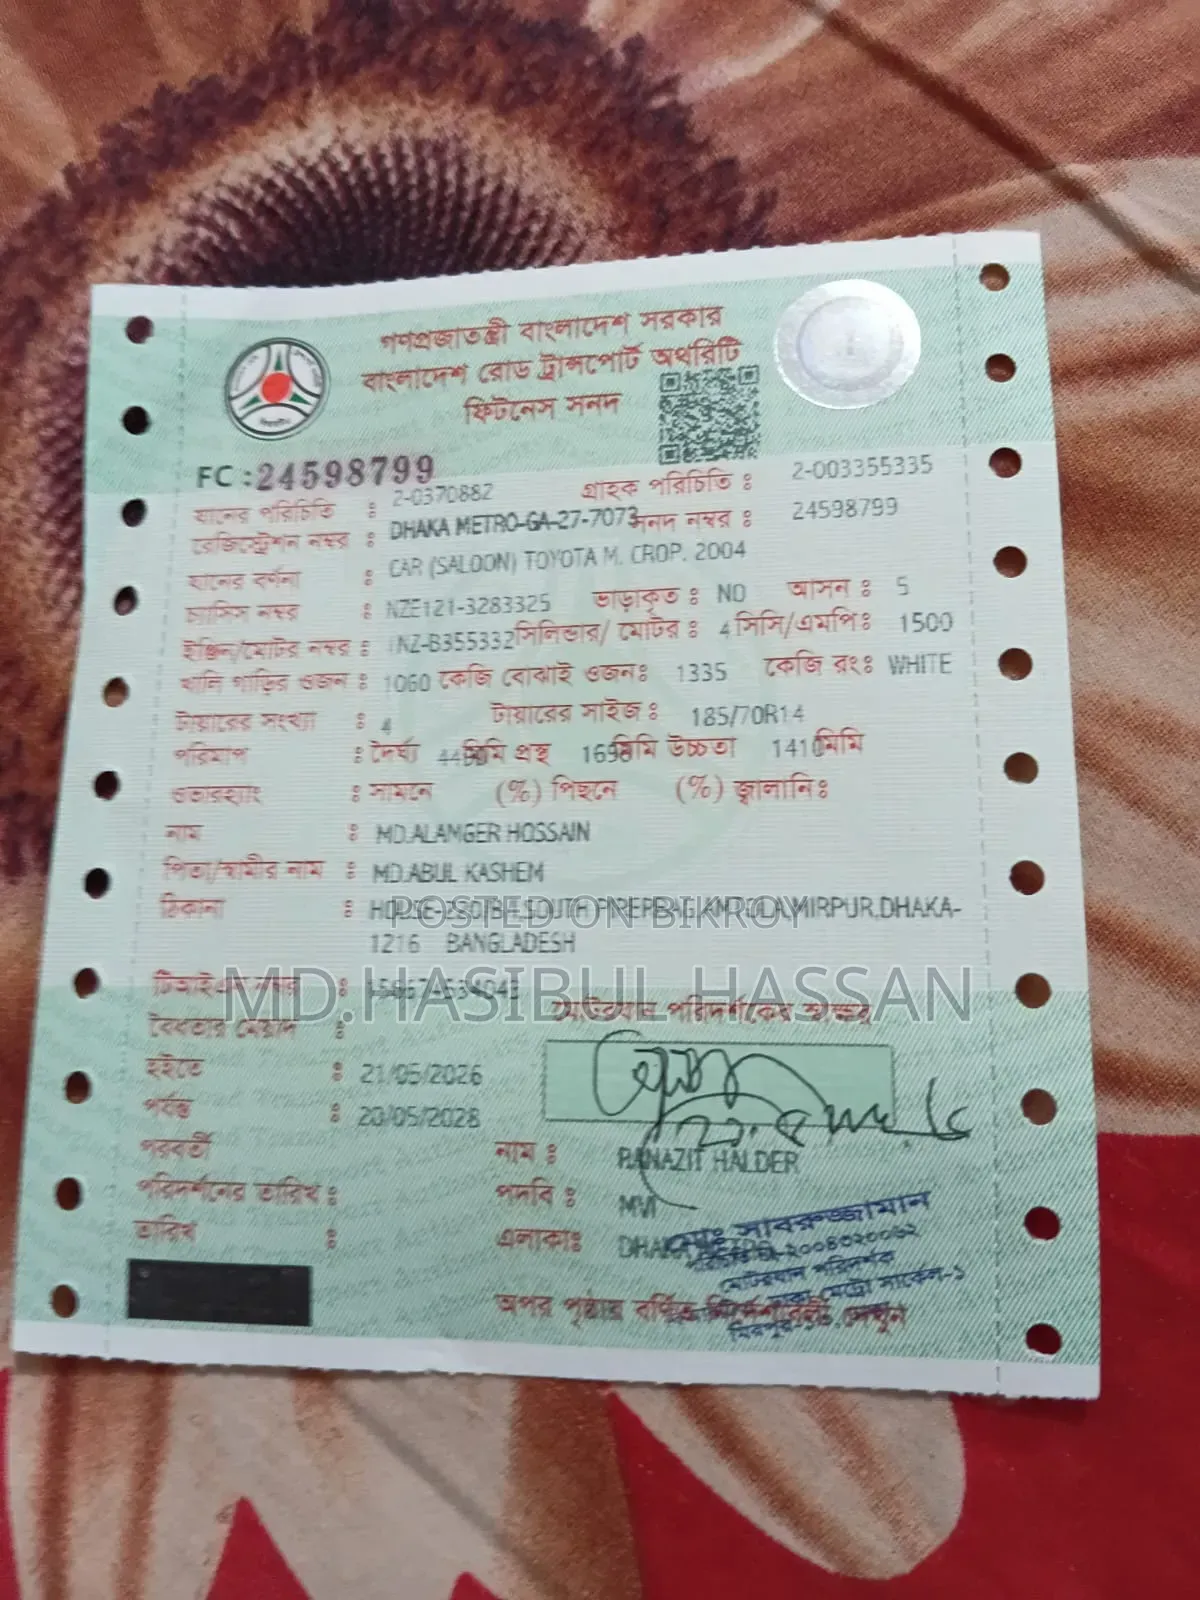 গণপ্রজাতন্ত্রী বাংলাদেশ সরকার
বাংলাদেশ রোড ট্রান্সপোর্ট অথরিটি
ফিটনেস সনদ
FC : 24598799
যানের পরিচিতি : 2-0370882 গ্রাহক পরিচিতি : 2-003355335
রেজিস্ট্রেশন নম্বর : DHAKA METRO-GA-27-7073 সনদ নম্বর : 24598799
যানের বর্ণনা : CAR (SALOON) TOYOTA M. CROP. 2004
চ্যাসিস নম্বর : NZE121-3283325 ভাড়াকৃত : NO আসন : 5
ইঞ্জিন/মোটর নম্বর : 1NZ-B355332 সিলিন্ডার/ মোটর : 4 সিসি/এমপি : 1500
খালি গাড়ির ওজন : 1060 কেজি বোঝাই ওজন : 1335 কেজি রং : WHITE
টায়ারের সংখ্যা : 4 টায়ারের সাইজ : 185/70R14
পরিমাপ : দৈর্ঘ্য মিমি প্রস্থ মিমি উচ্চতা 1410 মিমি
ওভারহ্যাং : সামনে (%) পিছনে (%) জ্বালানি :
নাম : MD.ALAMGER HOSSAIN
পিতা/স্বামীর নাম : MD.ABUL KASHEM
ঠিকানা : SOUTH MIRPUR,DHAKA-
1216 BANGLADESH
POSTED ON BIKROY
টিআইএন নম্বর :
MD.HASIBUL HASSAN
মোটরযান পরিদর্শকের স্বাক্ষর
বৈধতার মেয়াদ :
হইতে : 21/05/2026
পর্যন্ত : 20/05/2028
পরবর্তী
পরিদর্শনের তারিখ :
তারিখ :
নাম : RANAZIT HALDER
পদবি : MVI
এলাকা : DHAKA
মোঃ সাবরুজ্জামান
মোটরযান পরিদর্শক
ঢাকা মেট্রো সার্কেল-১
অপর পৃষ্ঠায় বর্ণিত দেখুন